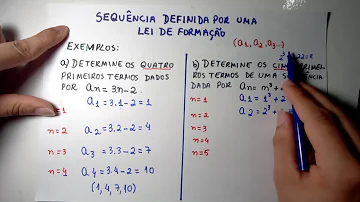 SEQUÊNCIA DEFINIDA POR UMA
LEI DE FORMAÇÃO
EXEMPLOS:
(a1, a2, a3...)
a) DETERMINE OS QUATRO
PRIMEIROS TERMOS DADOS
POR an = 3n-2.
n=1 a1 = 3.1-2 = 1
n=2 a2 = 3.2-2 = 4
n=3 a3 = 3.3-2 = 7
n=4 a4 = 3.4-2 = 10
(1,4,7,10)
b) DETERMINE OS
ROS TERMOS DE UMA
DADA POR an = n³+
n=1 a1 = 1³+2
n=2 a2 = 2³+
n=3
n=4
n=5